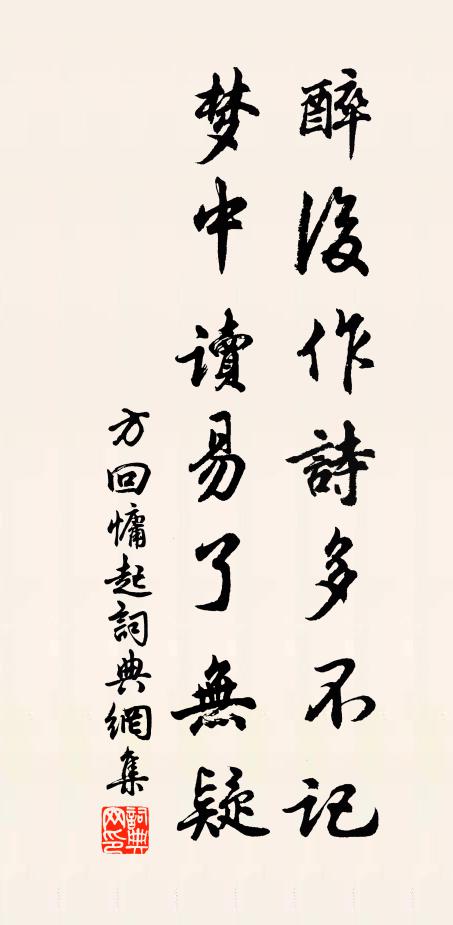 醉後作詩多不记
梦中讀易了無疑
方回慵起詞典網集
詞典网印